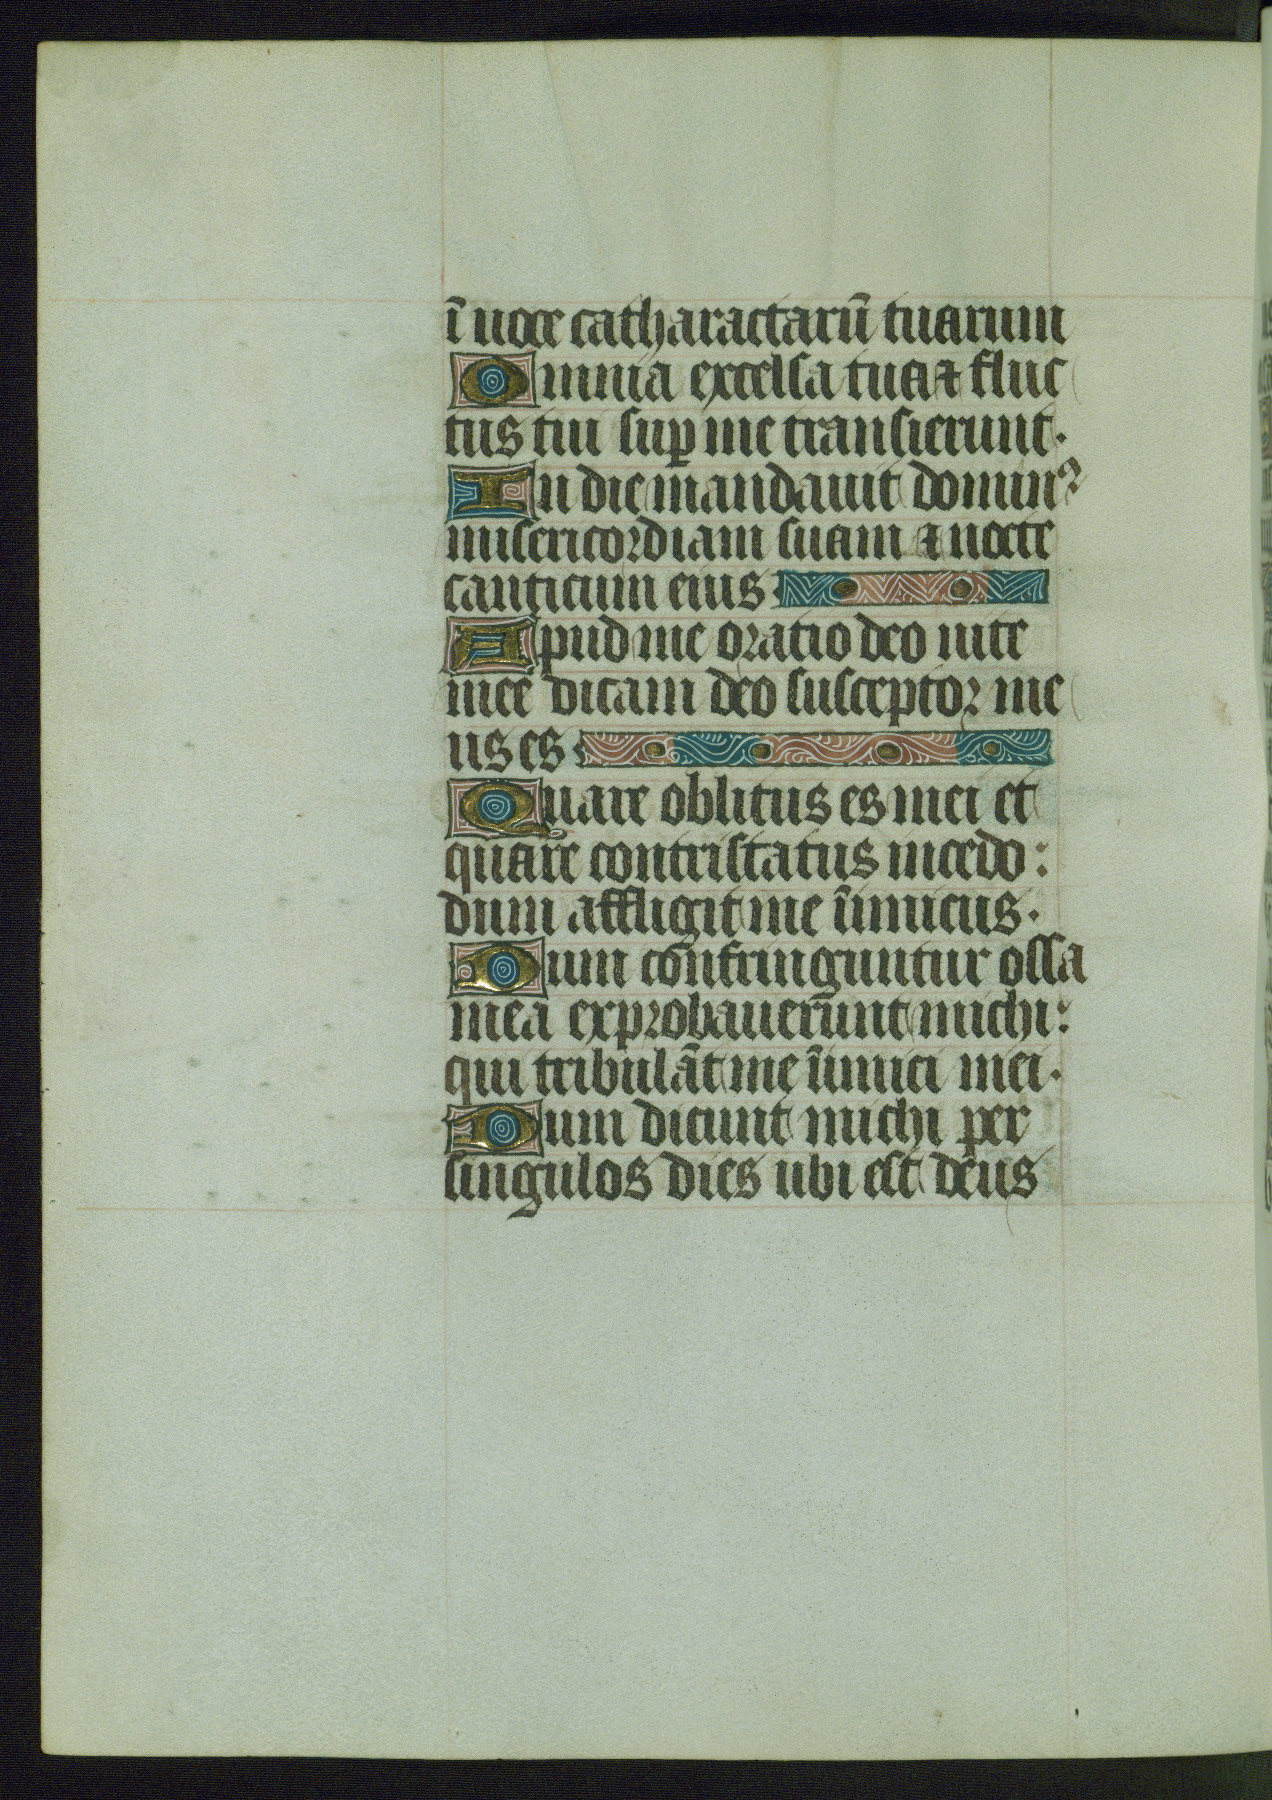 ī uoce catharactarū tuarum
Omnia excelsa tua ⁊ fluc
tus tui suꝑ me transierunt·
In die mandauit dominꝰ
misericordiam suam ⁊ nocte
canticum eius
Apud me oratio deo uite
mee dicam deo susceptor me
us es
Quare oblitus es mei et
quare contristatus incedo:
dum affligit me īimicus·
Dum confringuntur ossa
mea exprobauerunt michi:
qui tribulāt me īimici mei·
Dum dicunt michi per
singulos dies ubi est deus